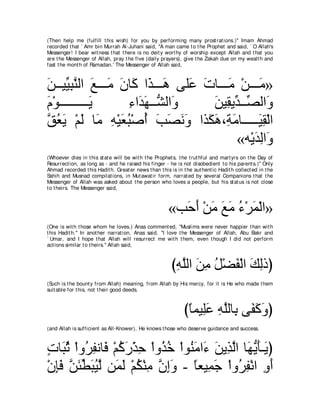 (Then help me (fulfill this wish) for you by performing many prostrations.)" Imam Ahmad
recorded that `Amr bin Murrah Al-Juhani said, "A man came to the Prophet and said, `O Allah's
Messenger! I bear witness that there is no deity worthy of worship except Allah and that you
are the Messenger of Allah, pray the five (daily prayers), give the Zakah due on my wealth and
fast the month of Ramadan.' The Messenger of Allah said,
«مَنْ مَاتَ عَلَى هَذَا كَانَ مَعَ النَّبِيِّينَ
وَالصِّدِّيقِينَ وَالشُّهَدَاءِ يَوْمَ
الْقِيَامَةِ، هَكَذَا وَنَصَبَ أُصْبُعَيْهِ مَا لَمْ يَعُقَّ
وَالِدَيْهِ»
(Whoever dies in this state will be with the Prophets, the truthful and martyrs on the Day of
Resurrection, as long as - and he raised his finger - he is not disobedient to his parents.)" Only
Ahmad recorded this Hadith. Greater news than this is in the authentic Hadith collected in the
Sahih and Musnad compilations, in Mutawatir form, narrated by several Companions that the
Messenger of Allah was asked about the person who loves a people, but his status is not close
to theirs. The Messenger said,
«الْمَرْءُ مَعَ مَنْ أَحَبَّ»
(One is with those whom he loves.) Anas commented, "Muslims were never happier than with
this Hadith." In another narration, Anas said, "I love the Messenger of Allah, Abu Bakr and
`Umar, and I hope that Allah will resurrect me with them, even though I did not perform
actions similar to theirs.'' Allah said,
(ذَلِكَ الْفَضْلُ مِنَ اللَّهِ)
(Such is the bounty from Allah) meaning, from Allah by His mercy, for it is He who made them
suitable for this, not their good deeds.
(وَكَفَى بِاللَّهِ عَلِيمًا)
(and Allah is sufficient as All-Knower), He knows those who deserve guidance and success.
(يَأَيُّهَا الَّذِينَ ءَامَنُواْ خُذُواْ حِذْرَكُمْ فَانفِرُواْ ثُبَاتٍ
أَوِ انْفِرُواْ جَمِيعاً - وَإِنَّ مِنْكُمْ لَمَن لَّيُبَطِّئَنَّ فَإِنْ